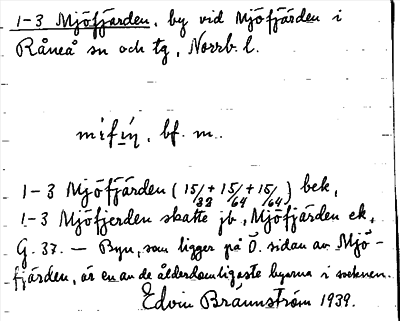 1-3 Mjöfjärden, by vid Mjöfjärden i
Råneå sn och tg, Norrb. l.
mìfı̣́ŋ, bf. m..
1-3 Mjöfjärden (15/32 + 15/64 + 15/64) bek,
1-3 Mjöfjerden skatte jb, Mjöfjärden ek,
G. 37. — Byn, som ligger på Ö. sidan av Mjö-
fjärden, är en av de ålderdomligaste byarna i socknen.
Edvin Brännström 1939.